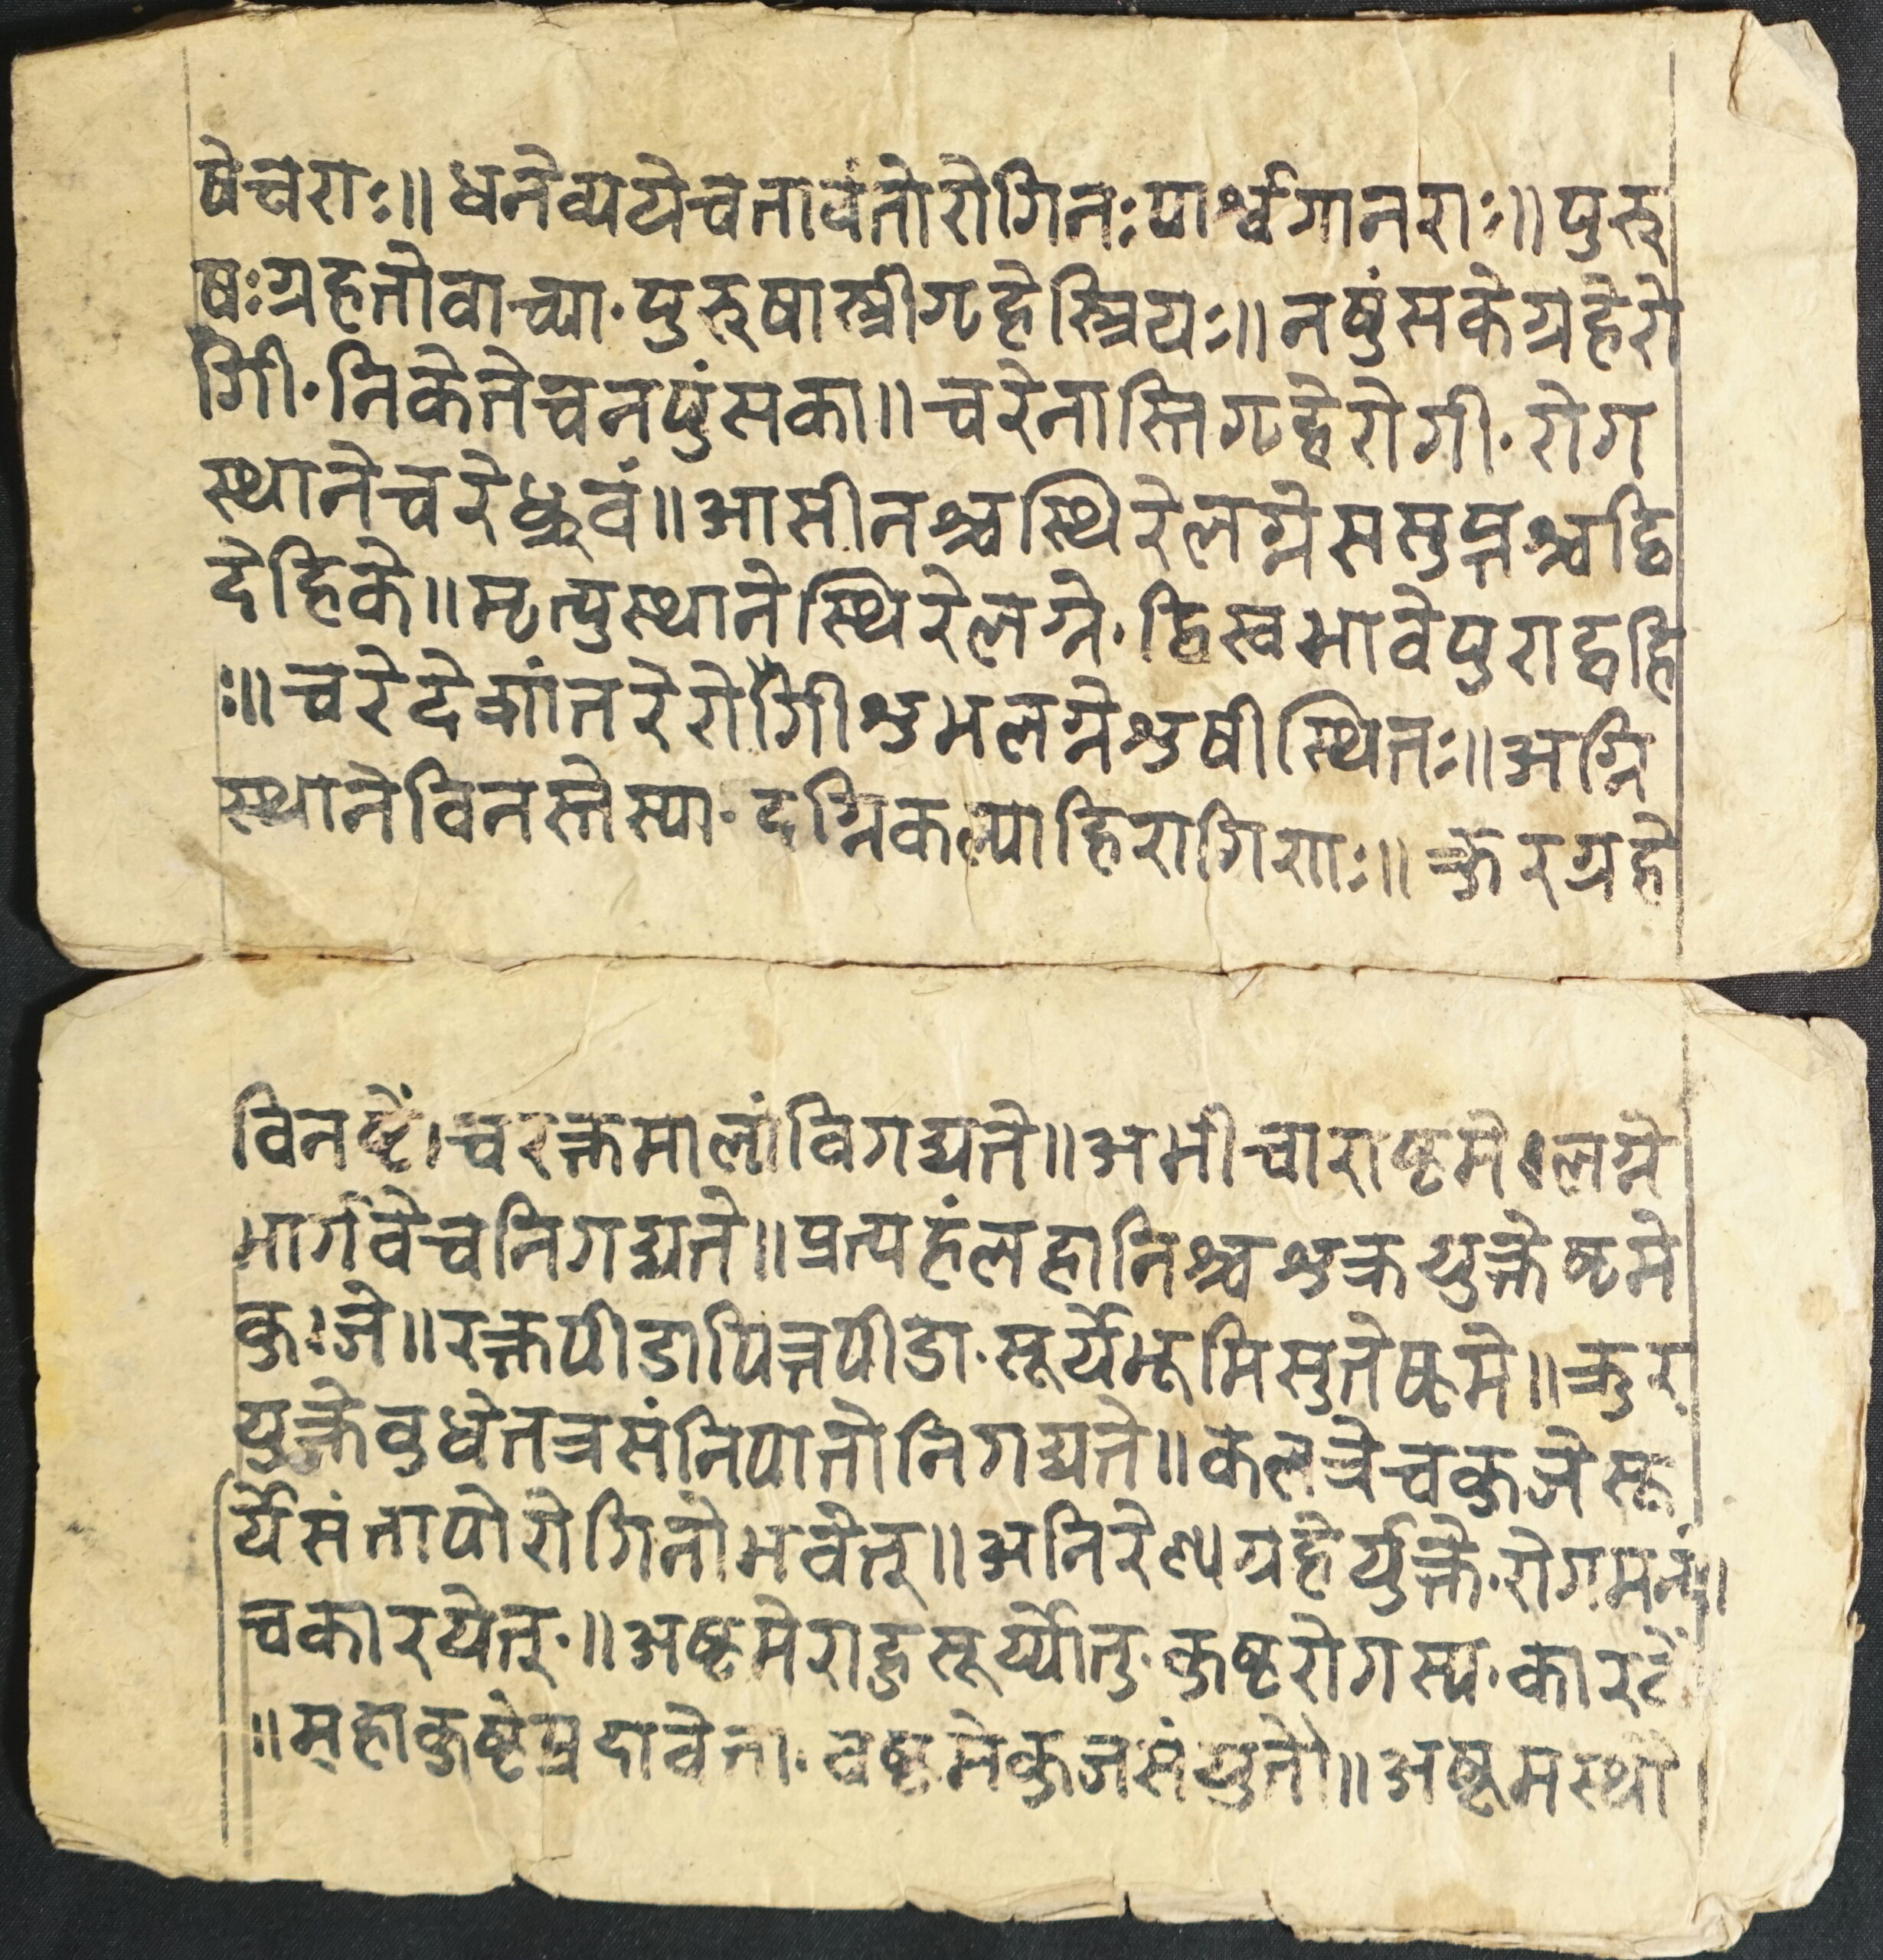 षेचराः॥ धनेव्ययेचतावंतोरोगिनःपार्श्वगानराः॥पुरु
षःग्रहतोवाच्या·पुरुषास्त्रीगृहेस्त्रियः॥नपुंसकेग्रहेरो
गिी·निकेतेचनपुंसका॥चरेनास्तिगृहेरोगी·रोग
स्थानेचरेध्रुवं॥आसीनश्चस्थिरेलग्नेससुप्तश्चद्वि
देहिके॥मृत्युस्थानेस्थिरेलग्ने·द्विस्वभावेपुराद्वहि
ः॥चरेदेशांतरेरोगिीशुभलग्नेशुषीस्थितः॥अग्नि
स्थानेविनस्तेस्या·दग्निकल्पाहिरागिणाः॥क्रुरग्रहे
विनष्टें।चरक्तमालांविगद्यते॥अभीचाराष्टमे।लग्ने
भार्गवेचनिगद्यते॥प्रत्यहंलहानिश्चशुक्रयुक्तेष्टमे
कुःजे॥रक्तपीडापित्तपीडा·सूर्येभूमिसुतेष्टमे॥क्रुर
युक्तेवुधेतत्रसंनिपातोनिगद्यते॥कलत्रेचकुजेसू
र्येसंतापोरोगिनोभवेत्॥अनिरेण्यग्रहेर्युक्ते·रोगमन्यं॥
चकारयेत्·॥अष्टमेराहुसूर्य्योतु·कुष्टरोगस्य·कारटें
॥महाकुष्टंप्रदावेता·वष्टमेकुजसंयुतौ॥अष्टमस्थो